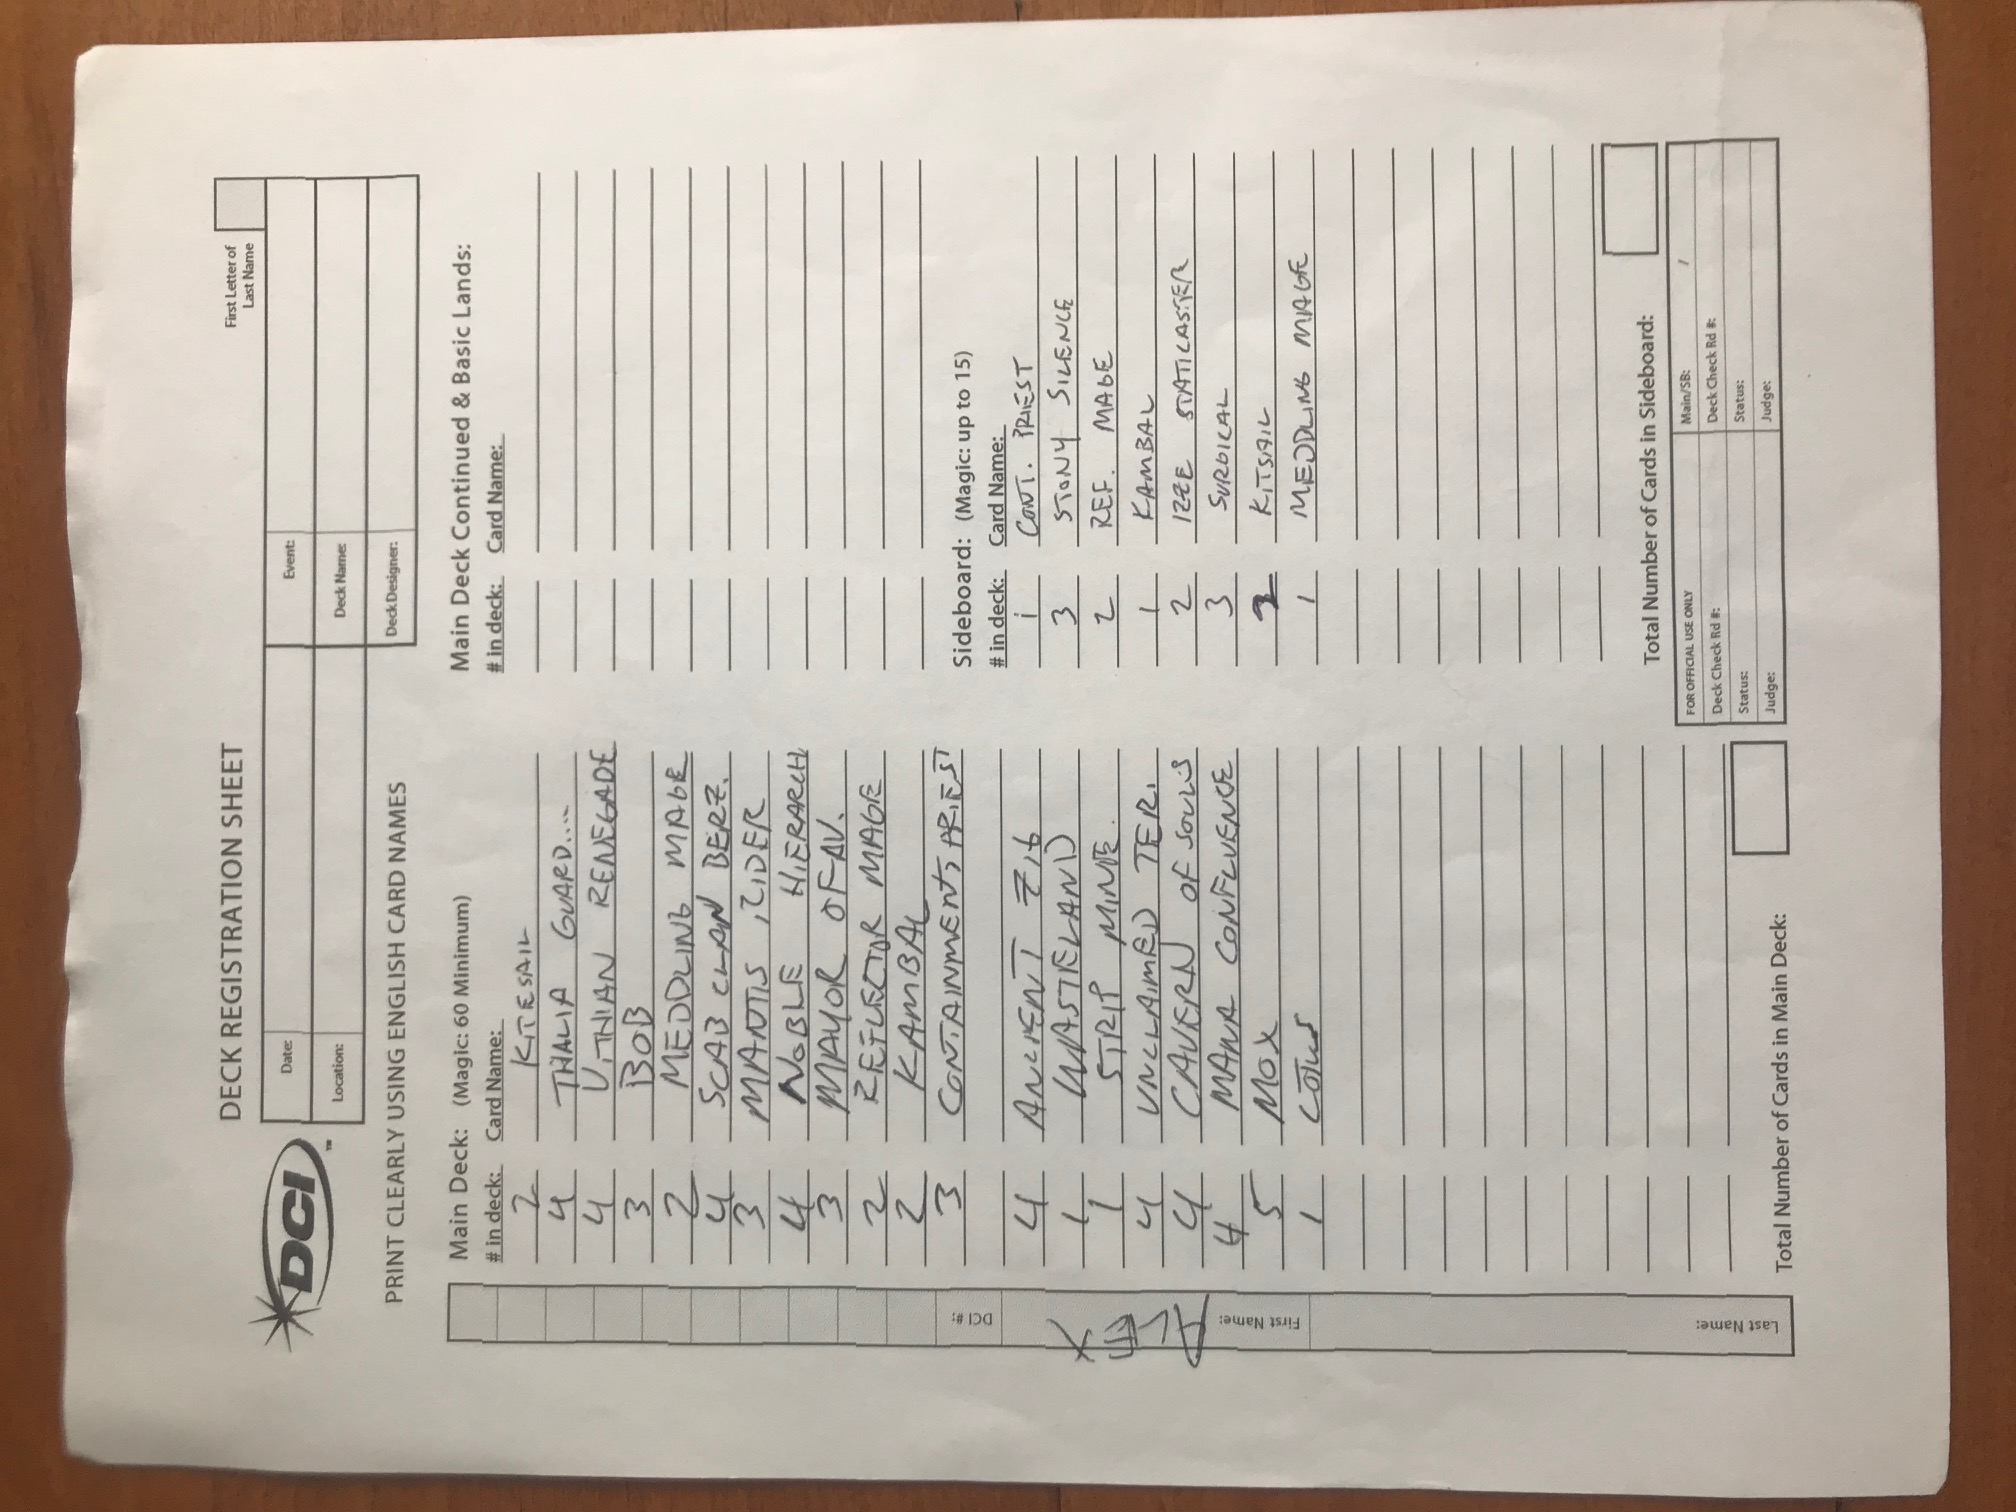 DECK REGISTRATION SHEET
First Letter of
Last Name
DCI™
Date:
Event:
Location:
Deck Name:
Deck Designer:
PRINT CLEARLY USING ENGLISH CARD NAMES
DCI #:
First Name: ALEX
Last Name:
Main Deck: (Magic: 60 Minimum)
# in deck: Card Name:
2 KITESAIL
4 THALIA GUARD....
4 VITHIAN RENEGADE
3 BOB
2 MEDDLING MAGE
4 SCAB CLAN BERZ.
3 MANTIS RIDER
4 NOBLE HIERARCH
3 MAYOR OF AV.
2 REFLECTOR MAGE
2 KAMBAL
3 CONTAINMENT PRIEST
4 ANCIENT ZIG
1 WASTELAND
1 STRIP MINE.
4 UNCLAIMED TER.
4 CAVERN OF SOULS
4 MANA CONFLUENCE
5 MOX
1 LOTUS
Total Number of Cards in Main Deck:
Main Deck Continued & Basic Lands:
# in deck: Card Name:
Sideboard: (Magic: up to 15)
# in deck: Card Name:
1 CONT. PRIEST
3 STONY SILENCE
2 REF. MAGE
1 KAMBAL
2 IZZE STATICASTER
3 SURGICAL
2 KITSAIL
1 MEDDLING MAGE
Total Number of Cards in Sideboard:
FOR OFFICIAL USE ONLY
Main/SB: /
Deck Check Rd #:
Deck Check Rd #:
Status:
Status:
Judge:
Judge: